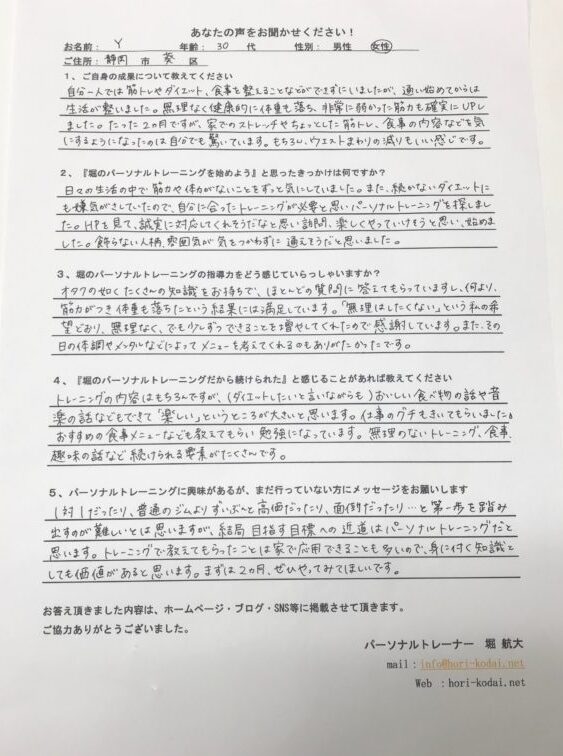 あなたの声をお聞かせください！
お名前： Y 年齢： 30 代 性別： 男性 女性
ご住所： 静岡 市 葵 区
1、ご自身の成果について教えてください
自分一人では筋トレやダイエット、食事を整えることなどができずにいましたが、通い始めてからは
生活が整いました。無理なく健康的に体重も落ち、非常に弱かった筋力も確実にUPし
ました。たった2ヵ月ですが、家でのストレッチやちょっとした筋トレ、食事の内容などを気
にするようになったのは自分でも驚いています。もちろん、ウエストまわりの減りもいい感じです。
2、『堀のパーソナルトレーニングを始めよう』と思ったきっかけは何ですか？
日々の生活の中で筋力や体力がないことをずっと気にしていました。また、続かないダイエットに
も嫌気がさしていたので、自分に合ったトレーニングが必要と思いパーソナルトレーニングを探しまし
た。HPを見て、誠実に対応してくれそうだなと思い訪問、楽しくやっていけそうと思い、始めま
した。飾らない人柄、雰囲気が気をつかわずに通えそうだと思いました。
3、堀のパーソナルトレーニングの指導力をどう感じていらっしゃいますか？
オタクの如くたくさんの知識をお持ちで、ほとんどの質問に答えてもらっていますし、何より、
筋力がつき体重も落ちたという結果には満足しています。「無理はしたくない」という私の希
望どおり、無理なく、でも少しずつできることを増やしてくれたので感謝しています。また、その
日の体調やメンタルなどによってメニューを考えてくれるのもありがたかったです。
4、『堀のパーソナルトレーニングだから続けられた』と感じることがあれば教えてください
トレーニングの内容はもちろんですが、(ダイエットしたいと言いながらも)おいしい食べ物の話や音
楽の話などもできて「楽しい」というところが大きいと思います。仕事のグチもきいてもらいました。
おすすめの食事メニューなども教えてもらい勉強になっています。無理のないトレーニング、食事、
趣味の話など続けられる要素がたくさんです。
5、パーソナルトレーニングに興味があるが、まだ行っていない方にメッセージをお願いします
1対1だったり、普通のジムよりずいぶんと高価だったり、面倒だったり…と第一歩を踏み
出すのが難しいとは思いますが、結局目指す目標への近道はパーソナルトレーニングだと
思います。トレーニングで教えてもらったことは家で応用できることも多いので、身に付く知識と
しても価値があると思います。まずは2ヵ月、ぜひやってみてほしいです。
お答え頂きました内容は、ホームページ・ブログ・SNS等に掲載させて頂きます。
ご協力ありがとうございました。
パーソナルトレーナー 堀 航大
mail：info@hori-kodai.net
Web ：hori-kodai.net